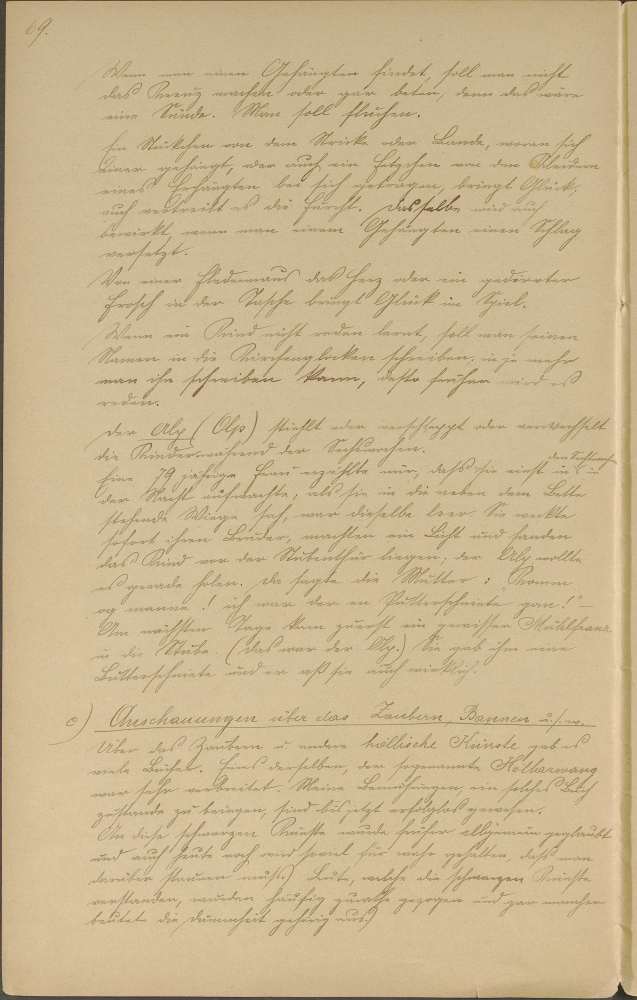 69.
Wenn man einen Gehängten findet, soll man nicht
das Kreuz machen oder gar beten, denn das wäre
eine Sünde. Man soll fluchen.
Ein Stückchen von dem Stricke oder Bande, woran sich
einer gehängt, oder auch ein Fetzchen von den Kleidern
eines Erhängten bei sich getragen, bringt Glück,
auch vertreibt es die Furcht. Dasselbe wird auch
bewirkt, wenn man einem Gehängten einen Schlag
versetzt.
Von einer Fledermaus das Herz oder ein gedörrter
Frosch in der Tasche bringt Glück im Spiel.
Wenn ein Kind nicht reden lernt, soll man seinen
Namen in die Kirchenglocken schreiben, u. je mehr
man ihn schreiben kann, desto früher wird es
reden.
Der Alp (Olp) stiehlt oder verschleppt oder verwechselt
die Kinder während der Sechswochen.
Eine 79 jährige Frau erzählte mir, dass sie einst in den Sechswoch. in
der Nacht aufwachte; als sie in die neben dem Bette
stehende Wiege sah, war dieselbe leer. Sie weckte
sofort ihren Bruder, machten ein Licht und fanden
das Kind vor der Stubenthür liegen; der Alp wollte
es gerade holen. Da sagte die Mutter: "Komm
og manne! ich war der en Putterschniete gan!" –
Am nächsten Tage kam zuerst ein gewisser Mühlfranz
in die Stube. (Das war der Olp.) Sie gab ihm eine
Butterschniete und er aß sie auch wirklich.
c) Anschauungen über das Zaubern, Bannen u.s.w.
Über das Zaubern u. andere höllische Künste gab es
viele Bücher. Eins derselben, der sogenannte Höllenzwang
war sehr verbreitet. Meine Bemühungen, ein solches Buch
zustande zu bringen, sind bis jetzt erfolglos gewesen.
An diese schwarzen Künste wurde früher allgemein geglaubt
und auch heute noch wird soviel für wahr gehalten, dass man
darüber staunen muss.) Leute, welche die schwarzen Künste
verstanden, wurden häufig zurathe gezogen und gar mancher
beutet die Dummheit gehörig aus.)